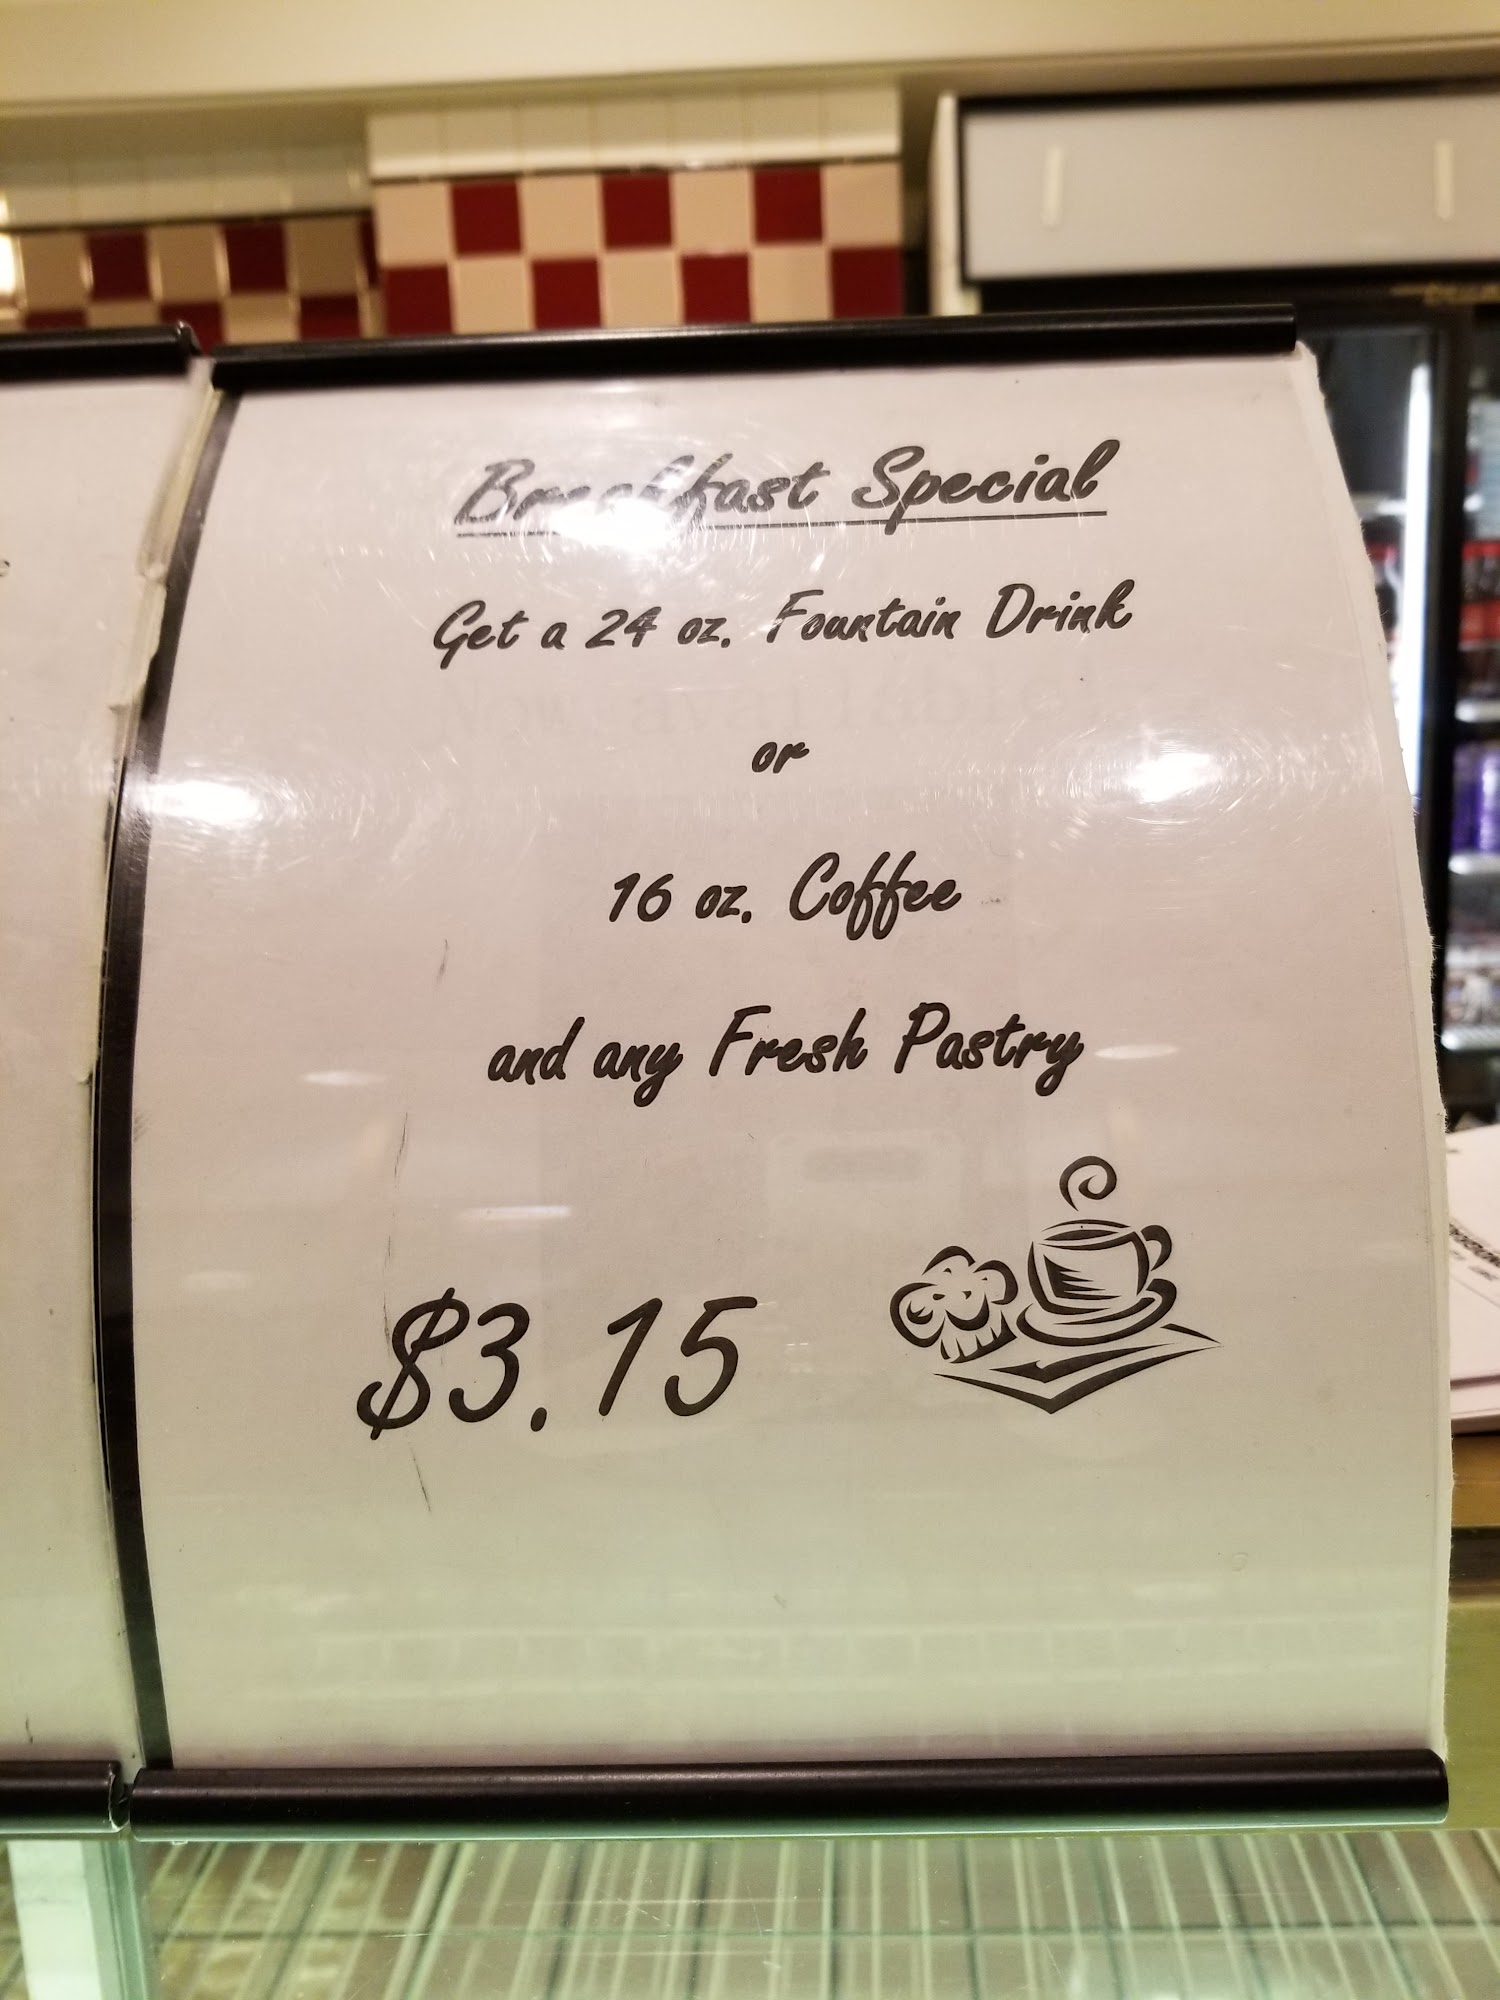 Breakfast Special
Get a 24 oz. Fountain Drink
or
16 oz. Coffee
and any Fresh Pastry
$3.15